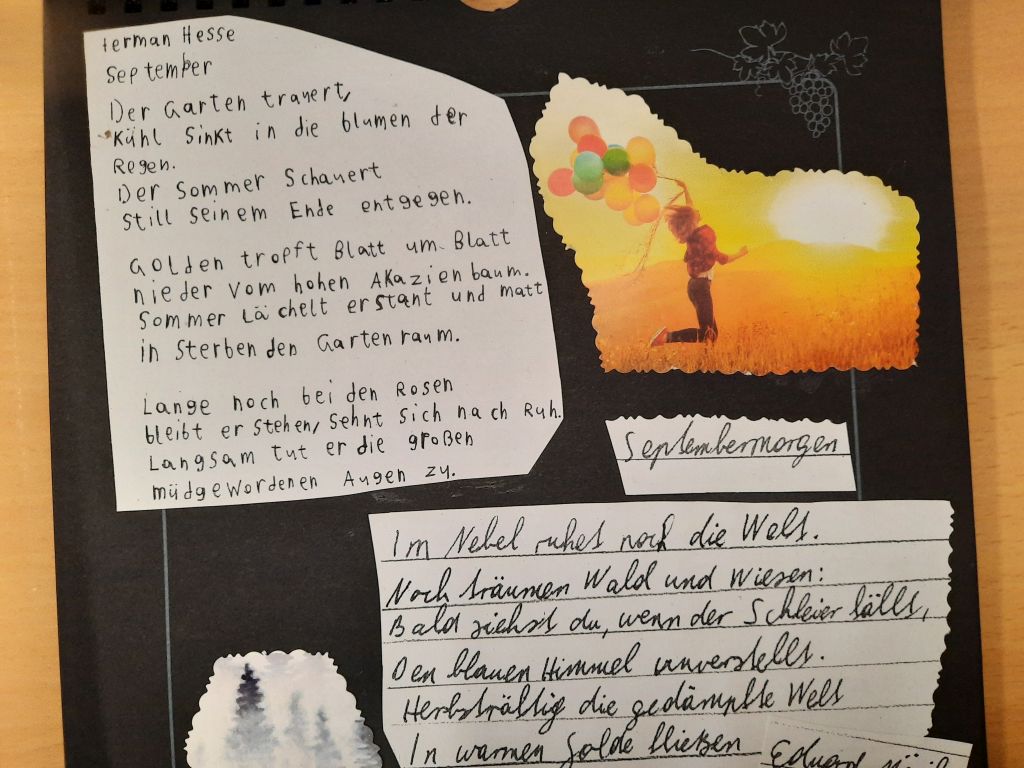 Herman Hesse
September
Der Garten trauert,
Kühl Sinkt in die blumen der
Regen.
Der Sommer Schauert
Still Seinem Ende entgegen.
Golden tropft Blatt um Blatt
nieder vom hohen Akazienbaum.
Sommer Lächelt erstant und matt
in Sterbenden Gartenraum.
Lange noch bei den Rosen
bleibt er Stehen, Sehnt Sich nach Ruh.
Langsam tut er die großen
müdgewordenen Augen zu.
Septembermorgen
Im Nebel ruhet noch die Welt.
Noch träumen Wald und Wiesen:
Bald siehst du, wenn der Schleier fällt,
Den blauen Himmel unverstellt.
Herbstkräftig die gedämpfte Welt
In warmen Golde fließen
Eduard